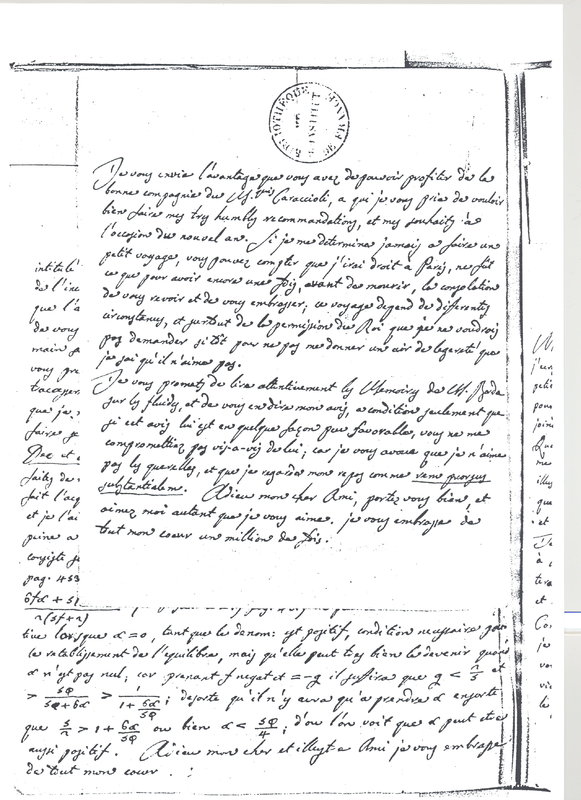 BIBLIOTHEQUE
L'INSTITUT
DE FRANCE
Je vous envie l'avantage que vous avez de pouvoir profiter de la
bonne compagnie du M. Caraccioli, a qui je vous prie de vouloir
bien faire mes tres humbles recommandations, et mes souhaits à
l'occasion du nouvel an. Si je me determine jamais a faire un
petit voyage, vous pouvez compter que j'irai droit à Paris, ne fût
ce que pour avoir encore une fois, avant de mourir, la consolation
de vous revoir et de vous embrasser; ce voyage depend de differentes
circonstances, et surtout de la permission du Roi que je ne voudrois
pas demander sitôt pour ne pas me donner un air de legereté que
je sai qu'il n'aime pas.
Je vous promets de lire attentivement les Memoires de M.
sur les fluides, et de vous en dire mon avis, a condition seulement que
si cet avis lui est en quelque façon peu favorable, vous ne me
compromettiez pas vis-a-vis de lui; car je vous avoue que je n'aime
pas les querelles, et que je regarde mon repos comme rem prorsus
substantialem. Adieu mon cher Ami, portez vous bien, et
aimez moi autant que je vous aime. je vous embrasse de
tout mon coeur un million de fois.
intitulé
de l'
que l'a
de vous
main
vous pre
tracasser
que je
faire
faites de
fait l'acq
et je l'ai
peine a
consiste
pag. 453
6fα + 5
n(5f+n)
tive lorsque α = 0, tant que le denom: est positif, condition necessaire pour
le retablissement de l'equilibre, mais qu'elle peut tres bien le devenir quand
α n'est pas nul; car prenant f negat et = -g il suffira que g < n/5 et
> 5φ/(5φ+6α) > 1/(1+6α/5φ); desorte qu'il n'y aura qu'à prendre α ensorte
que 5/n > 1 + 6α/5φ ou bien α < 5φ/4; d'où l'on voit que α peut etre
aussi positif. Adieu mon cher et illustre Ami je vous embrasse
de tout mon coeur.
petit
pour
joins
Que
me
illus
que
et
à
et
je